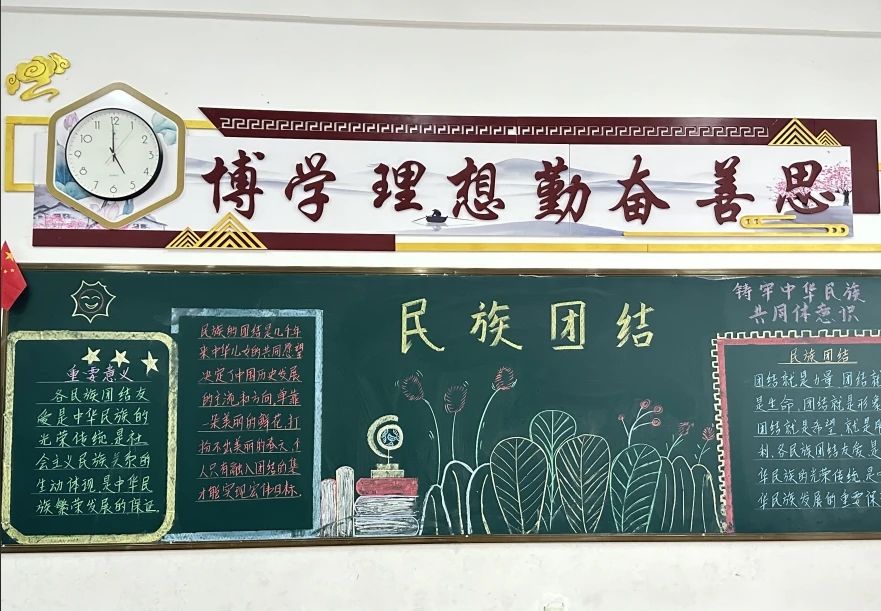 博学 理想 勤奋 善思
民族团结
重要意义
各民族团结友
爱是中华民族的
光荣传统是社
会主义民族关系的
生动体现是中华民
族繁荣发展的保证.
民族的团结是几千年
来中华儿女的共同愿望
决定了中国历史发展
的主流和方向,单靠
一朵美丽的鲜花,打
扮不出美丽的春天,个
人只有融入团结的集
才能实现宏伟目标.
铸牢中华民族
共同体意识
民族团结
团结就是力量 团结就
是生命,团结就是形象
团结就是希望,就是
村,各民族团结友爱是
华民族的光荣传统是
华民族发展的重要保
12
11
1
10
2
9
3
8
4
7
5
6